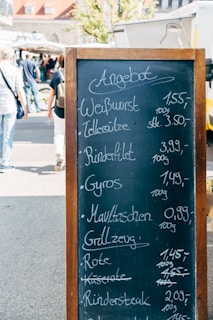 Angebot
Weißwurst 1,55,-
100g
Tellersülze stk. 3.50-
Rinderfilet 3,99,-
100g
Gyros 1,49,-
100g
Maultaschen 0,99,-
100g
Grillzeug
Rote 1,45,-
100g
Käserote 1,65,-
100g
Rindersteak 2,09,-
100g